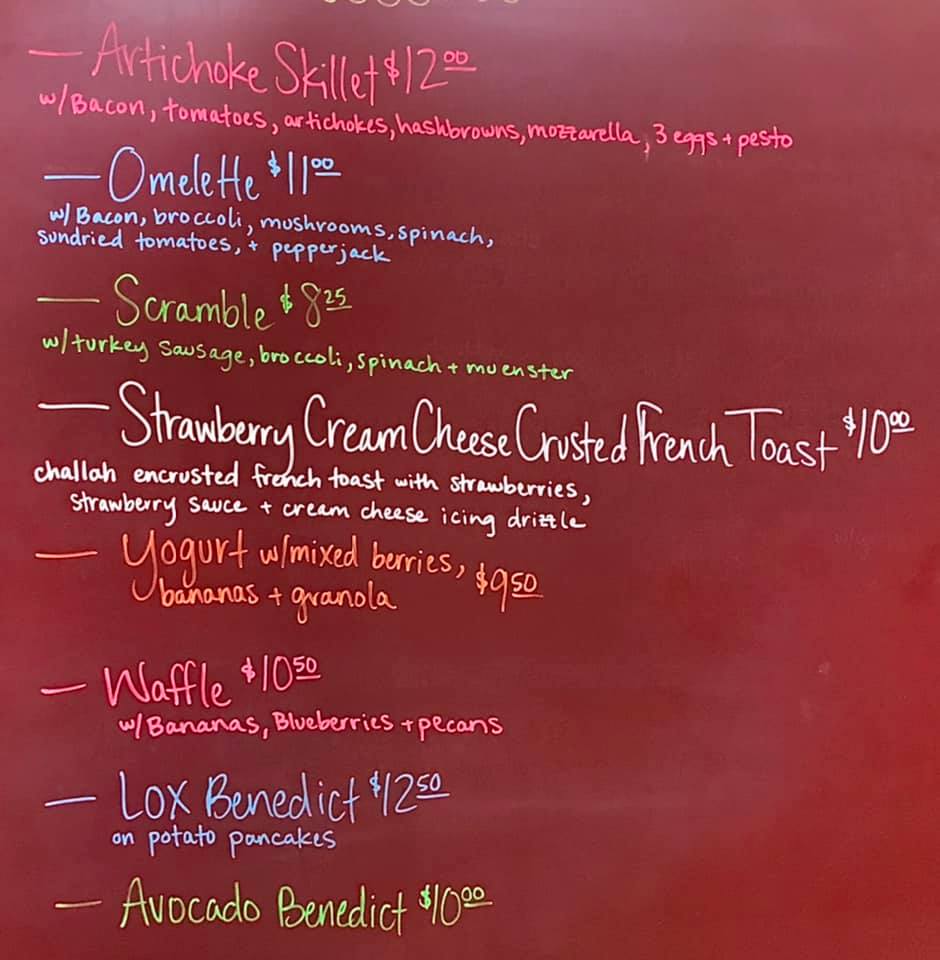 — Artichoke Skillet $12.00
w/Bacon, tomatoes, artichokes, hashbrowns, mozzarella, 3 eggs + pesto
— Omelette $11.00
w/ Bacon, broccoli, mushrooms, spinach,
sundried tomatoes, + pepperjack
— Scramble $8.25
w/turkey sausage, broccoli, spinach + muenster
— Strawberry Cream Cheese Crusted French Toast $10.00
challah encrusted french toast with strawberries,
strawberry sauce + cream cheese icing drizzle
— Yogurt w/mixed berries, $9.50
bananas + granola
— Waffle $10.50
w/Bananas, Blueberries + pecans
— Lox Benedict $12.50
on potato pancakes
— Avocado Benedict $10.00